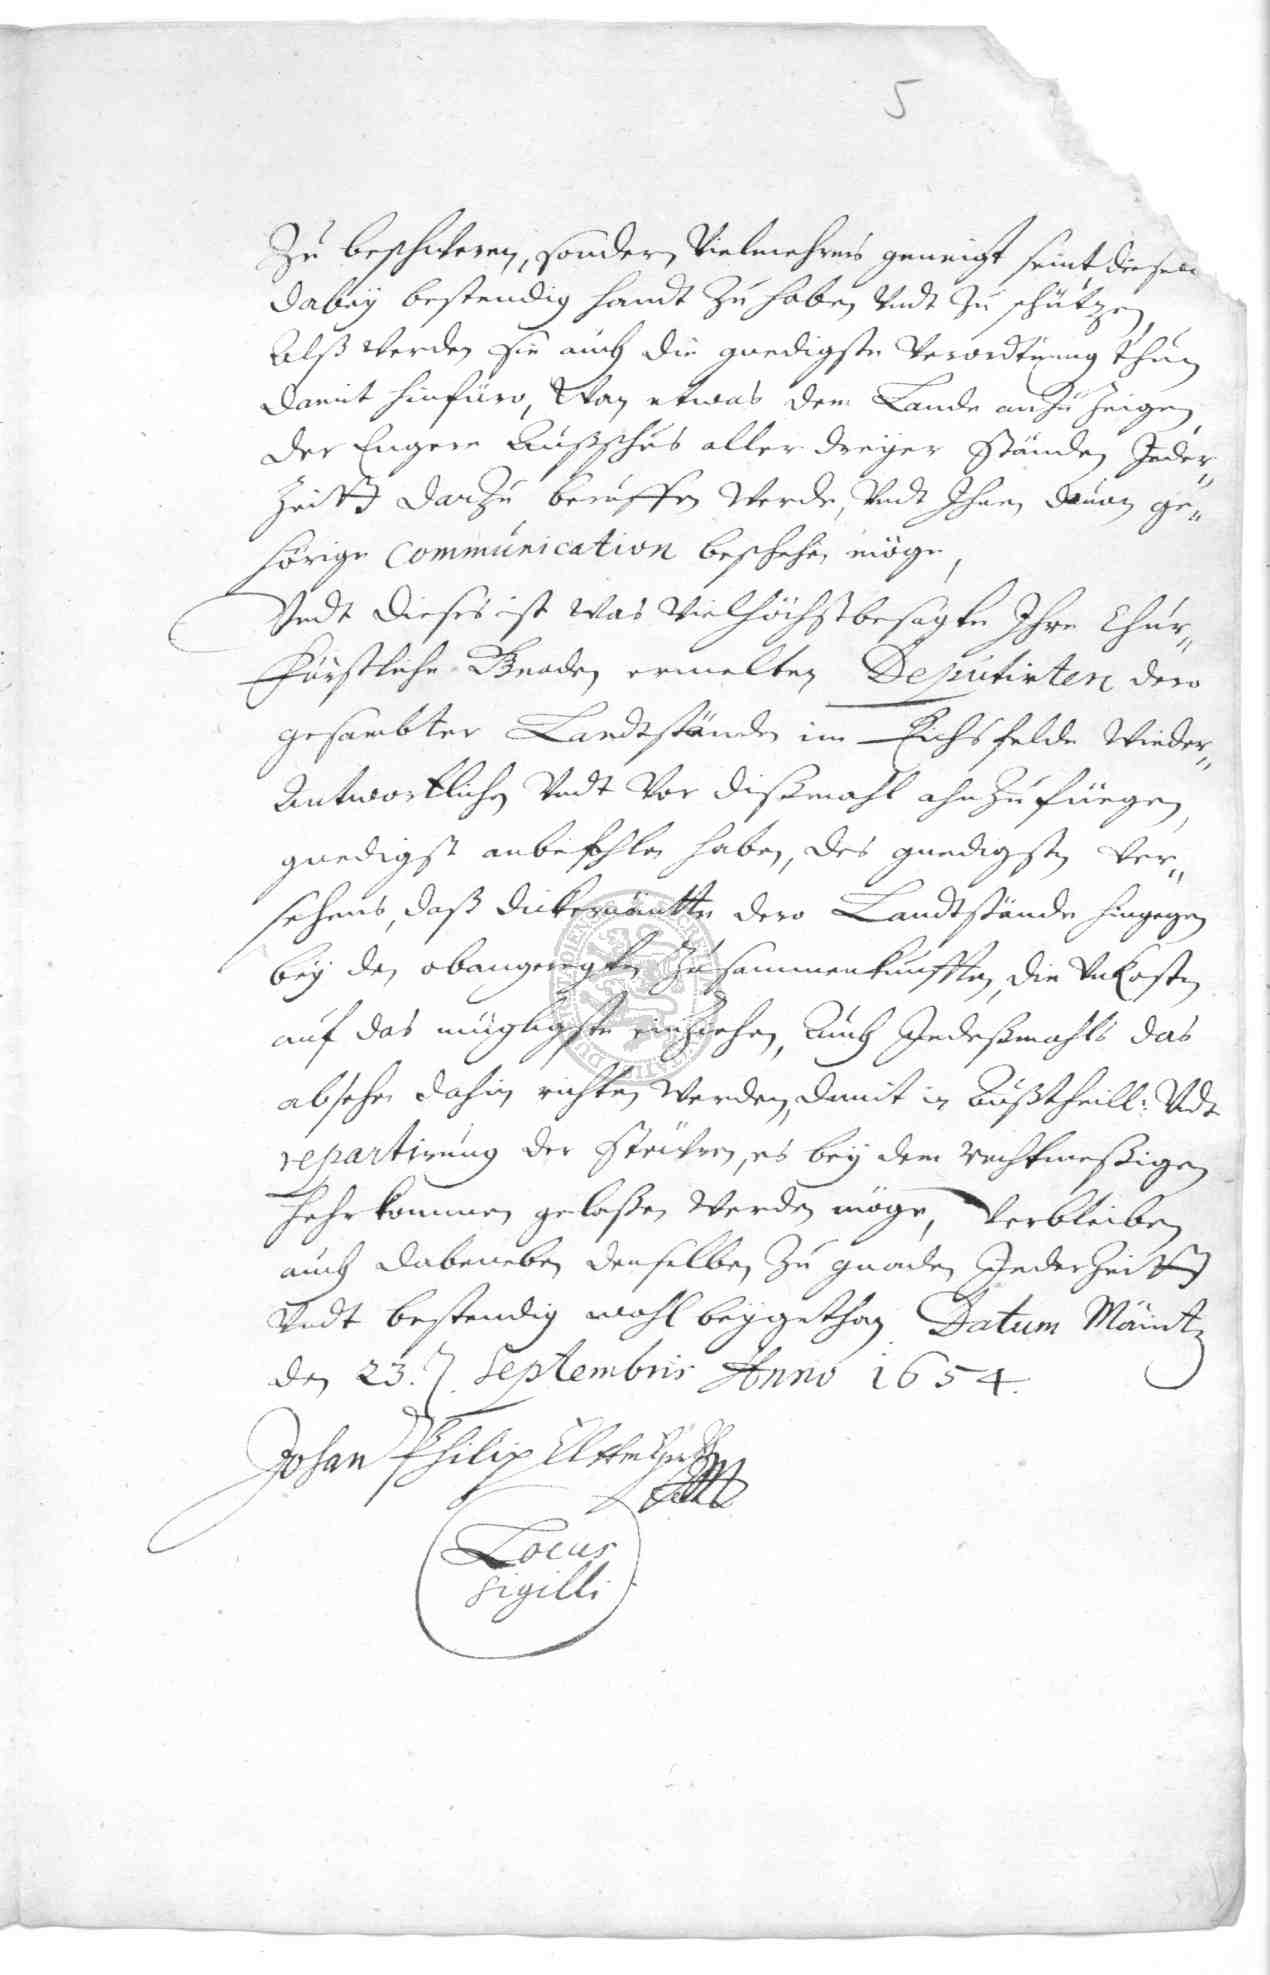 5
Zu beschweren, sondern Vielmehrers geneigt seint diesel
dabeÿ bestendig handt Zu haben Vndt Zu schützen,
Alß werden sie auch die gnedigste Verordtnung thun
damit hinfüro, Wan etwas dem Lande anzuzeigen,
der Engere Außschus aller dreÿer Ständen Jeder„
Zeitt darzu beruffen werde, Vndt Ihnen dauon ge„
hörige Communication beschehen möge,
Vndt dieses ist was Vielhöchstbesagte Ihre Chur„
fürstliche Gnaden ermelten Deputirten dero
gesambter Landtstände im Eichsfelde wieder„
Antwortlichen Vndt Vor dißmahl ahnZufüegen,
gnedigst anbefohlen haben, des gnedigsten Ver„
sehens, daß dickernantte dero Landtstände hingegen
beÿ den obangeregten Zusammenkunfften, die Vnkosten
auf das müglichste einziehen, Auch Jedeßmahls das
absehen dahin richten werden, damit in Außtheill: Vndt
repartirung der Steüren, es beÿ dem rechtmeßigen
hehrkommen gelaßen werden möge, Verbleiben
auch dabeneben denselben Zu gnaden Jederzeitt
Vndt bestendig wohl beÿgethan Datum Mäintz
den 23. 7. Septembris Anno 1654.
Johan Philip
Locus
Sigilli